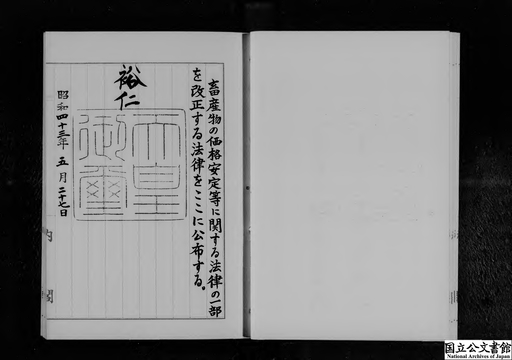 畜産物の価格安定等に関する法律の一部
を改正する法律をここに公布する。
裕仁
天皇御璽
昭和四十三年五月二十七日
内閣
国立公文書館
National Archives of Japan